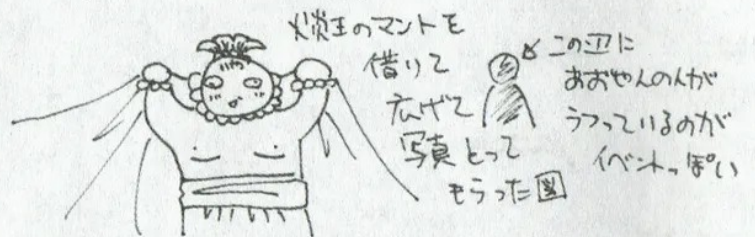 炎王のマントを
借りて
広げて
写真とって
もらった図
この辺に
うつっているのが
イベントっぽい